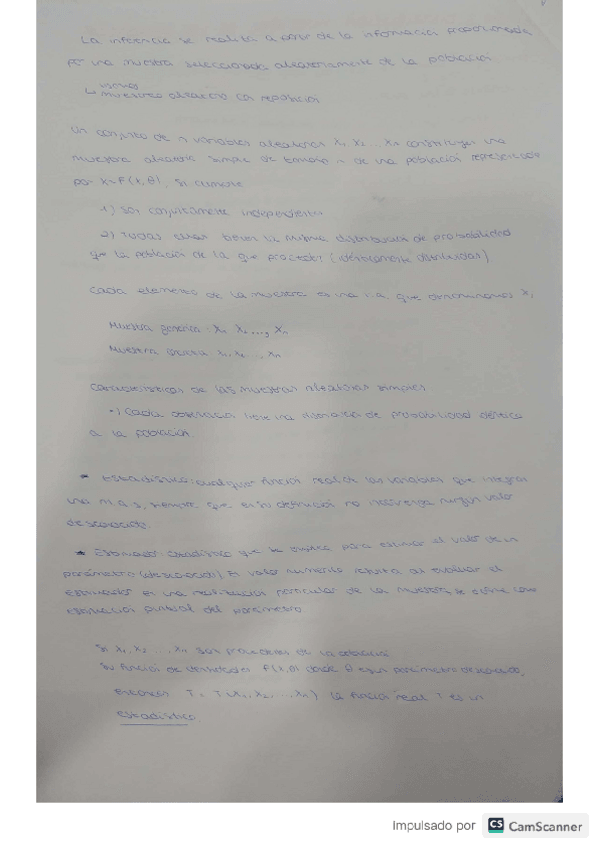 La inferencia se realiza a partir de la información proporcionada
por una muestra seleccionada aleatoriamente de la población
muestreo aleatorio con reposición
Un conjunto de n variables aleatorias X1 X2 ... Xn constituyen una
muestra aleatoria simple de tamaño n de una población representada
por X~F(x,θ), si cumple
1) son conjuntamente independientes
2) Todas ellas tienen la misma distribución de probabilidad
que la población de la que proceden (idénticamente distribuidas)
Cada elemento de la muestra es una v.a. que denominamos Xi
Muestra genérica: X1 X2 ..., Xn
Muestra x1, x2 ... xn
Características de las muestras aleatorias simples
•) Cada observación tiene una distribución de probabilidad idéntica
a la población.
* Estadístico: cualquier función real de las variables que integran
una m.a.s, siempre que en su definición no intervenga ningún valor
desconocido.
* Estimador: estadístico que se emplea para estimar el valor de un
parámetro (desconocido). El valor numérico resulta al evaluar el
estimador en una realización particular de la muestra, se define como
estimación puntual del parámetro.
Si X1, X2 ... Xn son procedentes de la población
Su función de f(x,θ) donde θ es un parámetro desconocido,
entonces T = T(X1, X2, ..., Xn) la función real T es un
estadístico
Impulsado por CS CamScanner